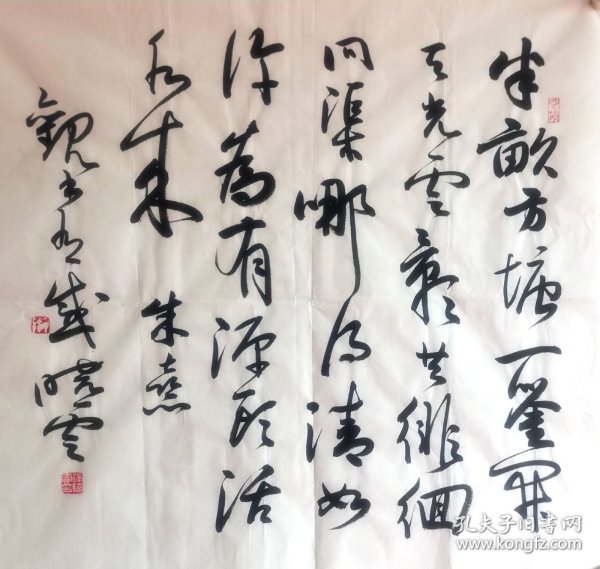 半畝方塘一鉴开
天光雲影共徘徊
问渠哪得清如
许為有源头活
水来 朱熹
观书有感 晓雲
孔夫子旧书网
www.kongfz.com